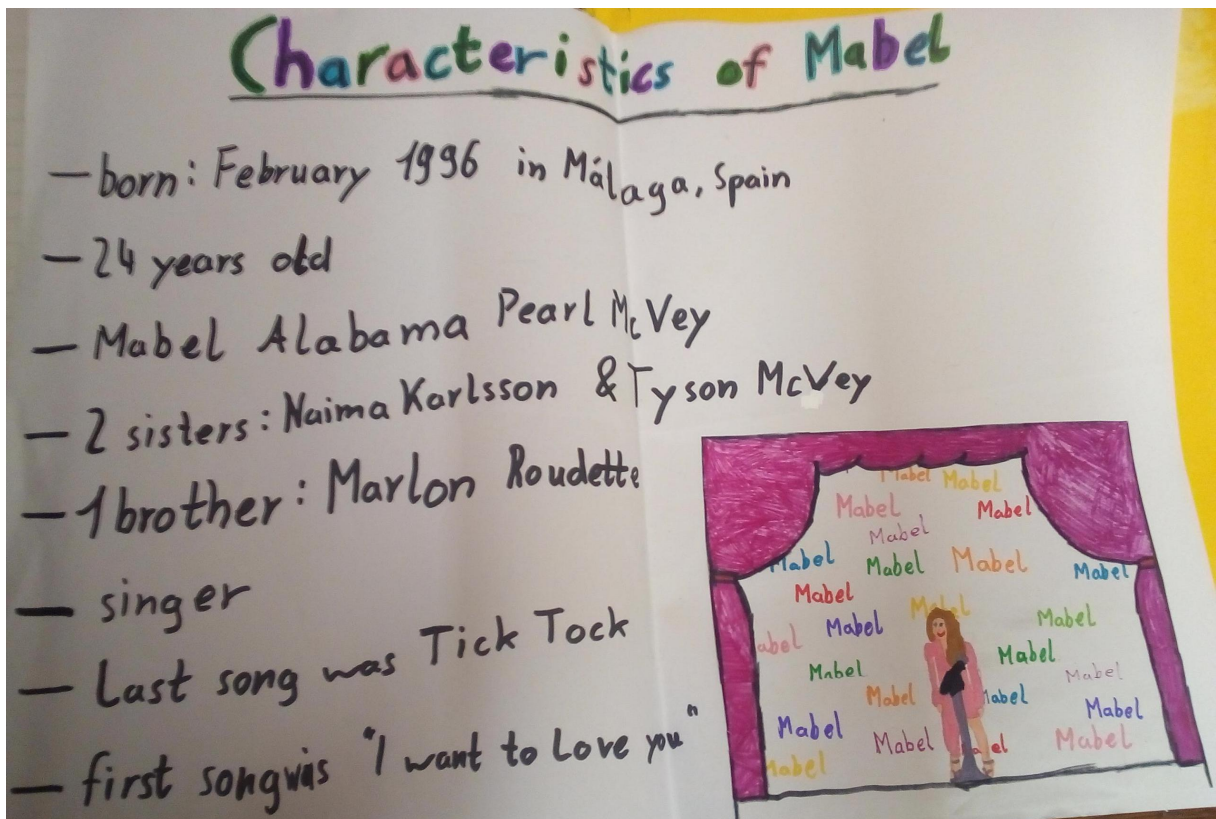 Characteristics of Mabel
– born: February 1996 in Málaga, Spain
– 24 years old
– Mabel Alabama Pearl McVey
– 2 sisters: Naima Karlsson & Tyson McVey
– 1 brother: Marlon Roudette
– singer
– Last song was Tick Tock
– first song was "I want to Love you"
Mabel Mabel
Mabel Mabel
Mabel
Mabel Mabel Mabel Mabel
Mabel Mabel
Mabel Mabel
abel Mabel
Mabel Mabel
Mabel Mabel Mabel
Mabel Mabel el Mabel
Mabel